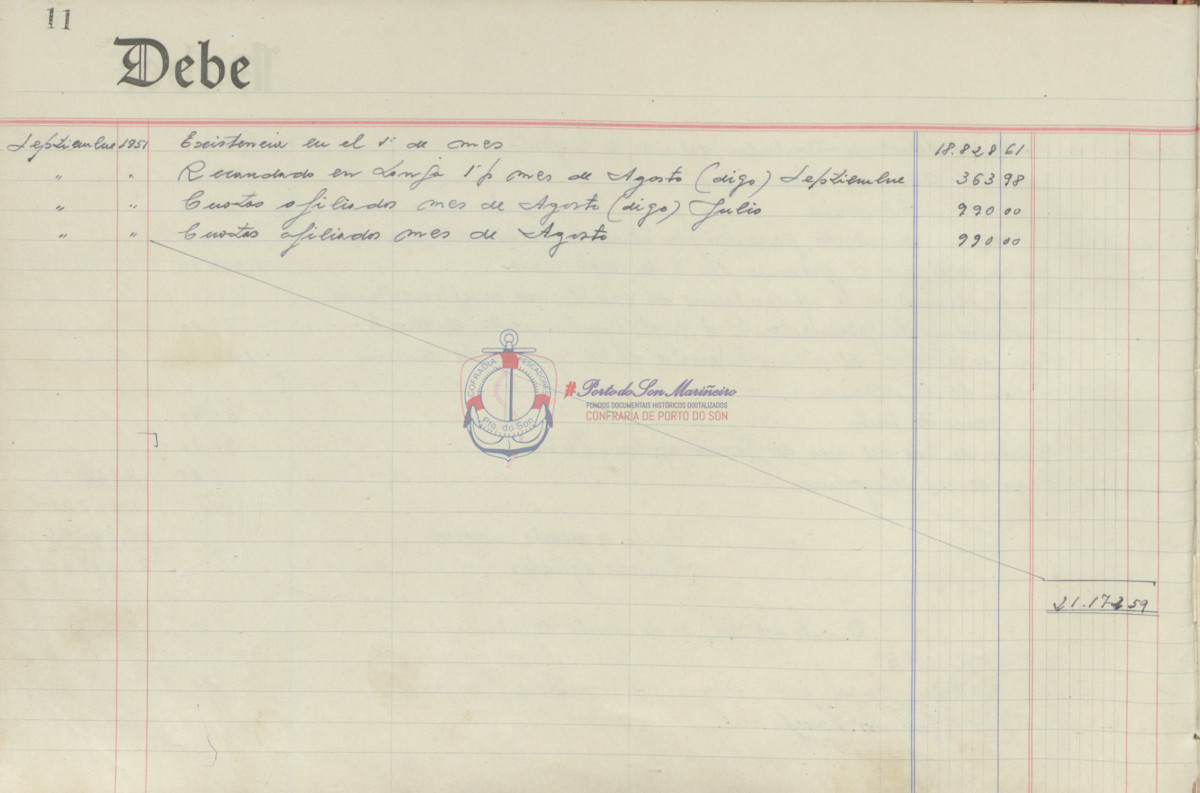 11
Debe
Septiembre 1951 Existencia en el 1º de mes 18.828 61
" " Recaudado en Lonja 1 p% mes de Agosto (digo) Septiembre 363 98
" " Cuotas afiliados mes de Agosto (digo) Julio 990 00
" " Cuotas afiliados mes de Agosto 990 00
COFRADIA PESCADORES
Pto. do Son
#Porto do Son Mariñeiro
FONDOS DOCUMENTAIS HISTÓRICOS DIXITALIZADOS
CONFRARIA DE PORTO DO SON
21.172 59